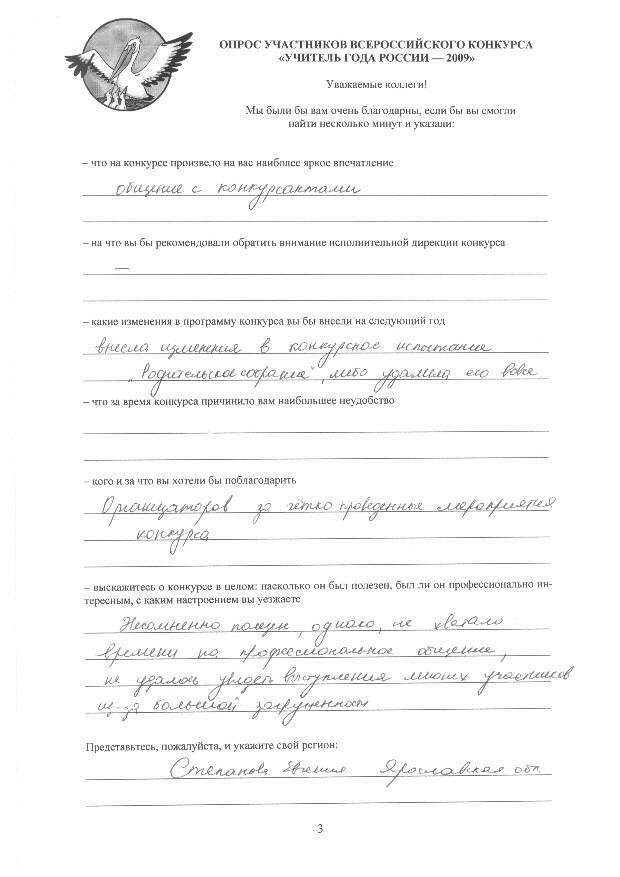 ОПРОС УЧАСТНИКОВ ВСЕРОССИЙСКОГО КОНКУРСА
«УЧИТЕЛЬ ГОДА РОССИИ — 2009»
Уважаемые коллеги!
Мы были бы вам очень благодарны, если бы вы смогли
найти несколько минут и указали:
– что на конкурсе произвело на вас наиболее яркое впечатление
общение с конкурсантами
– на что вы бы рекомендовали обратить внимание исполнительной дирекции конкурса
—
– какие изменения в программу конкурса вы бы внесли на следующий год
внесла изменения в конкурсное испытание
„Родительское собрание", либо удалила его вовсе
– что за время конкурса причинило вам наибольшее неудобство
– кого и за что вы хотели бы поблагодарить
Организаторов за чётко проведенные мероприятия
конкурса
– выскажитесь о конкурсе в целом: насколько он был полезен, был ли он профессионально ин-
тересным, с каким настроением вы уезжаете
Несомненно полезен, однако, не хватало
времени на профессиональное общение,
не удалось увидеть выступления многих участников
из-за большой загруженности.
Представьтесь, пожалуйста, и укажите свой регион:
Степанова Евгения Ярославская обл.
3